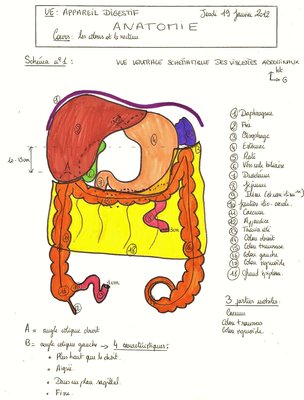 UE: APPAREIL DIGESTIF
Jeudi 19 janvier 2012
ANATOMIE
Cours: Les colons et le rectum
Schéma n°1:
VUE VENTRALE SCHÉMATIQUE DES VISCÈRES ABDOMINAUX
Ht
G
① Diaphragme
② Foie
③ Oesophage
④ Estomac
⑤ Rate
⑥ Vésicule biliaire
⑦ Duodénum
⑧ Jéjunum
⑨ Iléon
⑩ Jonction iléo-caecale
⑪ Caecum
⑫ Appendice
⑬ Colon droit
Colon transverse
Colon gauche
Colon sigmoïde
Grand épiploon
3 parties mobiles:
Caecum
Colon transverse
Colon sigmoïde
A = angle colique droit
B = angle colique gauche → 4 caractéristiques:
• Plus haut que le droit.
• Aigüe.
• Dans un plan sagittal.
• Fixe.